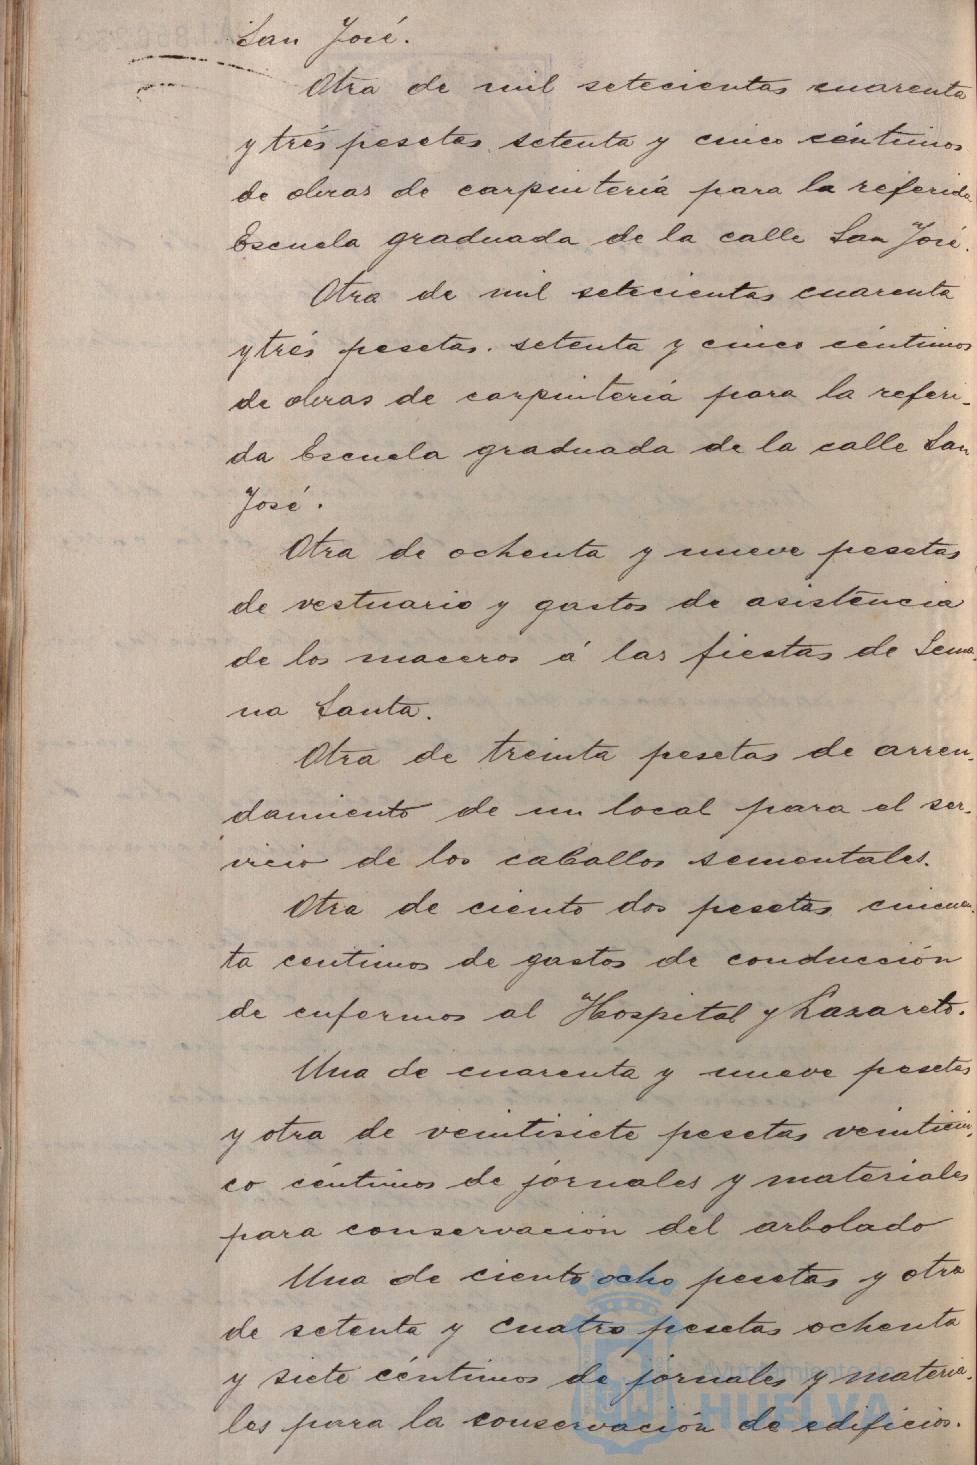 San José.
Otra de mil setecientas cuarenta
y trés pesetas setenta y cinco céntimos
de obras de carpintería para la referida
Escuela graduada de la calle San José.
Otra de mil setecientas cuarenta
y trés pesetas. setenta y cinco céntimos
de obras de carpintería para la referi-
da Escuela graduada de la calle San
José.
Otra de ochenta y nueve pesetas
de vestuario y gastos de asistencia
de los maceros á las fiestas de Sema-
na Santa.
Otra de treinta pesetas de arren-
damiento de un local para el ser-
vicio de los caballos sementales.
Otra de ciento dos pesetas cincuen-
ta centimos de gastos de conducción
de enfermos al Hospital y Lazareto.
Una de cuarenta y nueve pesetas
y otra de veintisiete pesetas veinticin-
co céntimos de jornales y materiales
para conservación del arbolado
Una de ciento ocho pesetas y otra
de setenta y cuatro pesetas ochenta
y siete céntimos de jornales y materia-
les para la conservación de edificios.
Ayuntamiento de
HUELVA